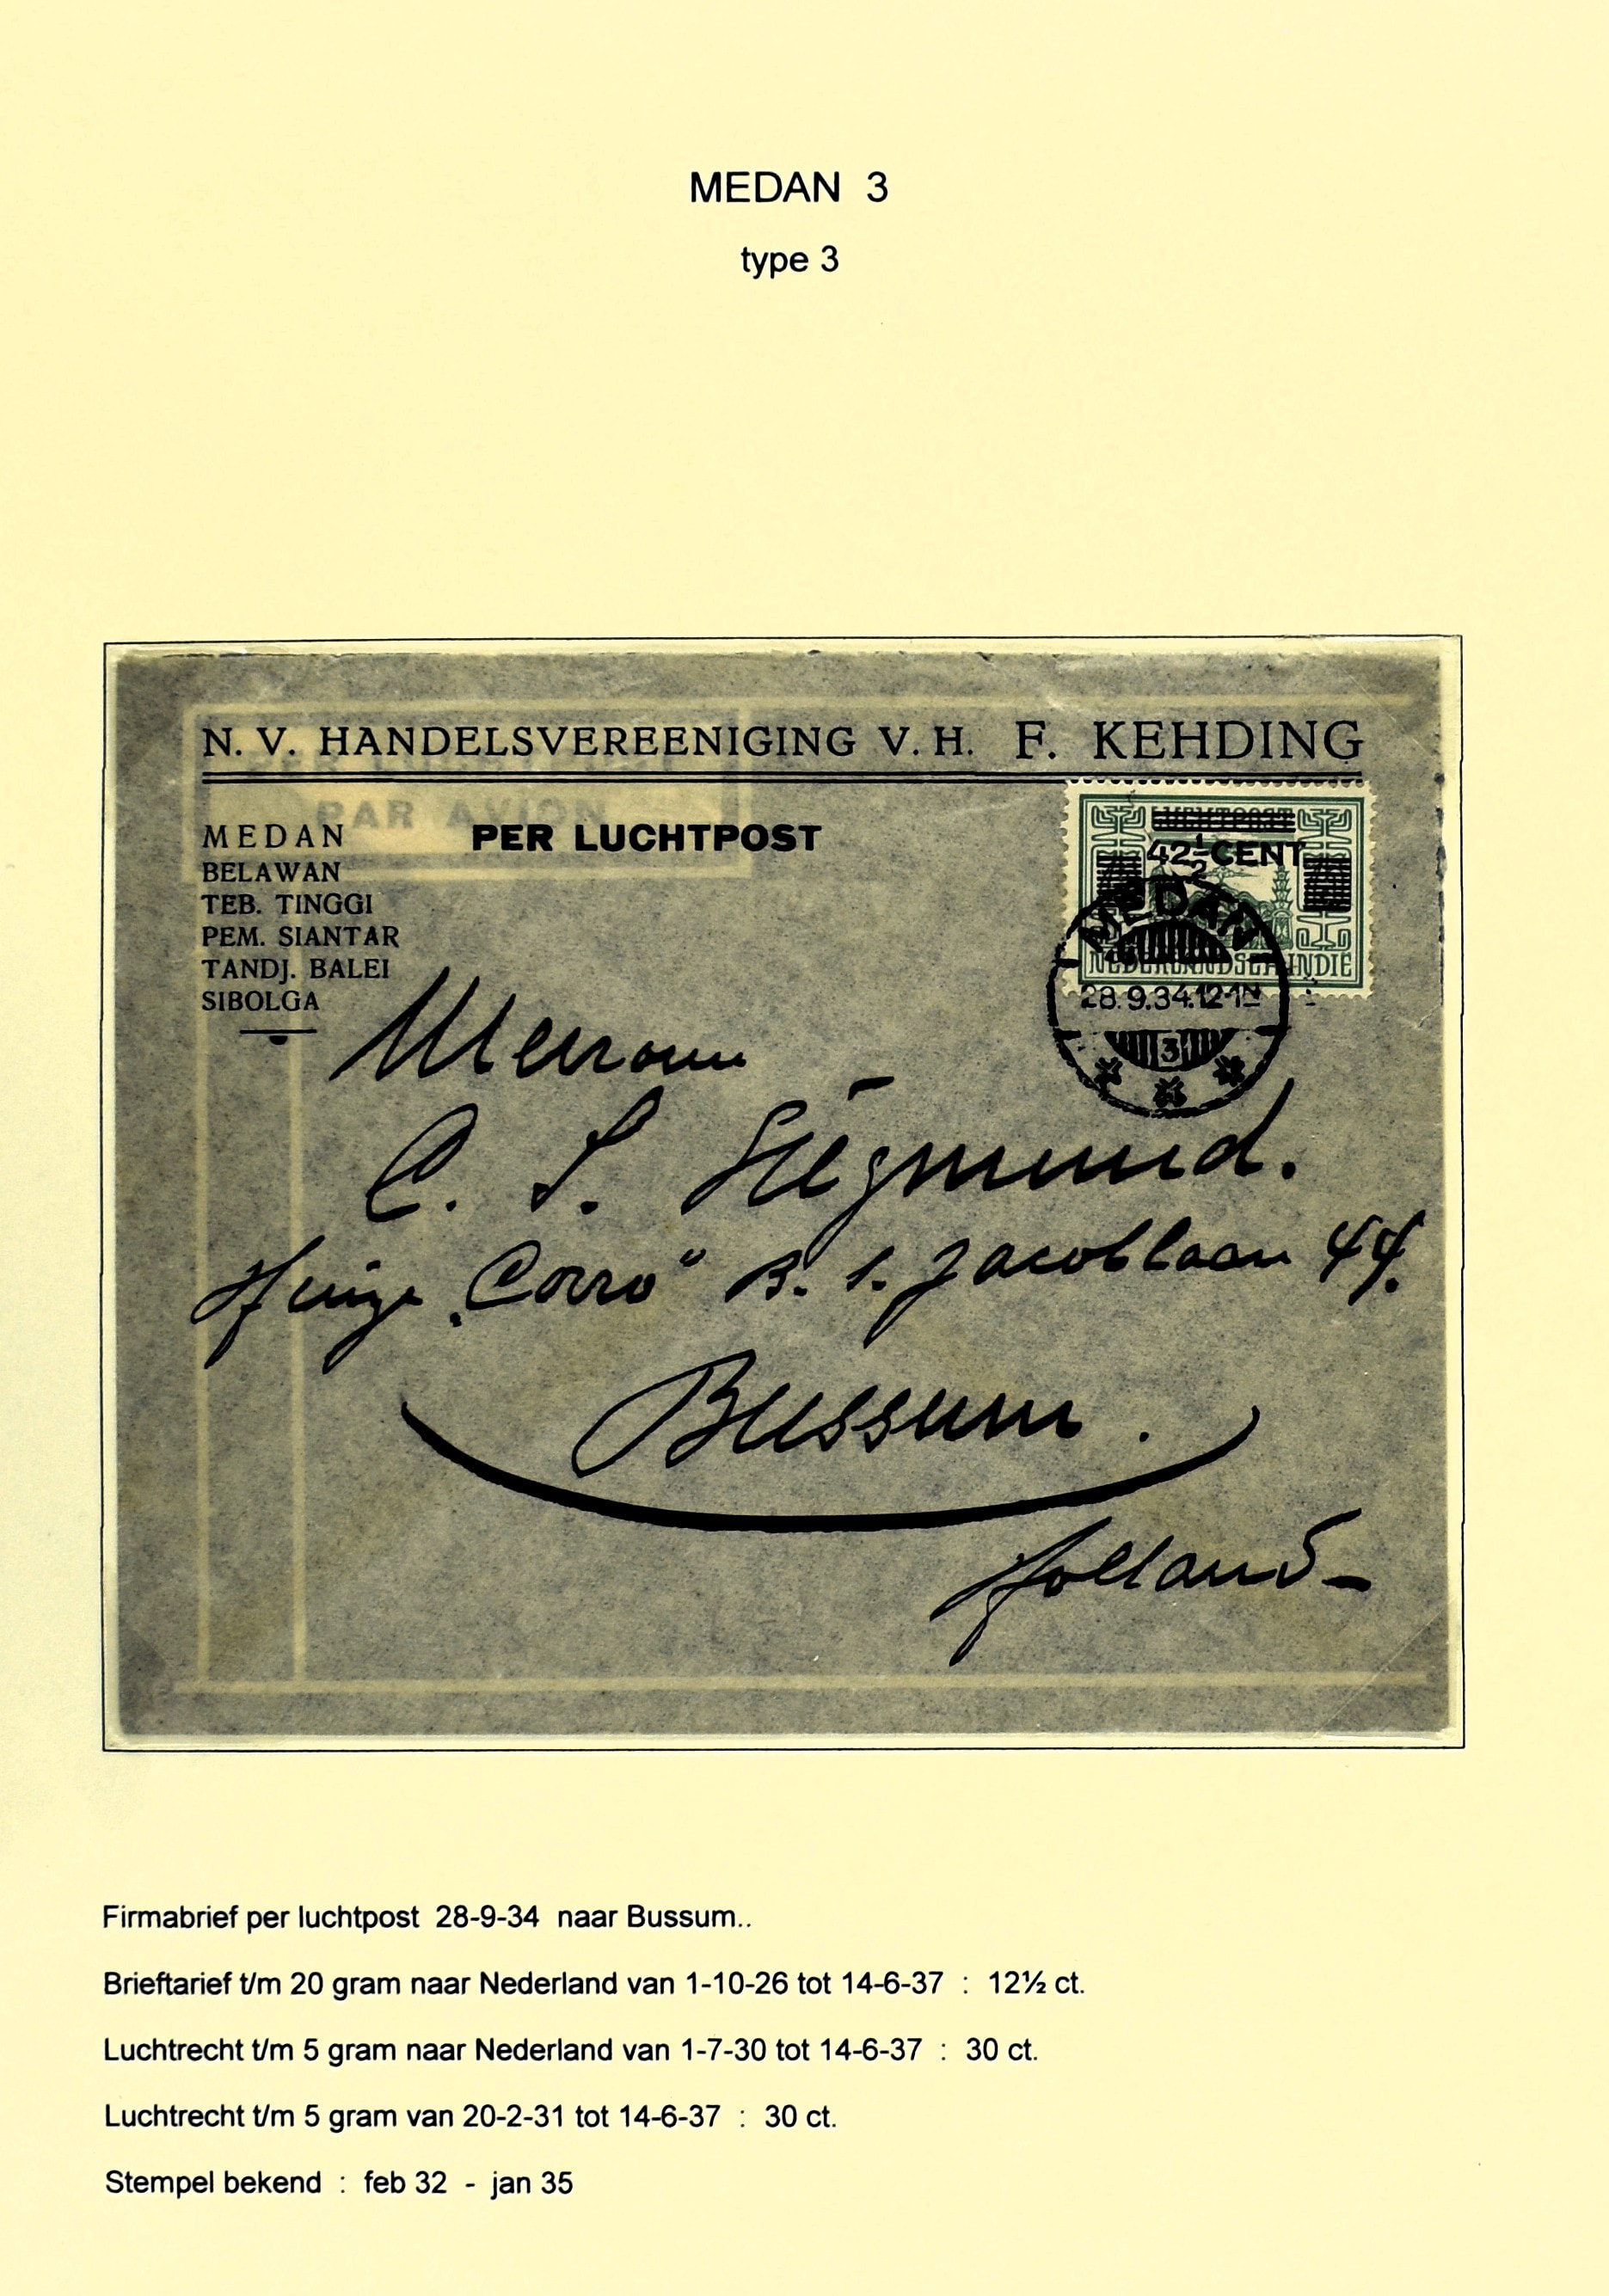 MEDAN 3
type 3
N. V. HANDELSVEREENIGING V. H. F. KEHDING
PAR AVION
MEDAN
PER LUCHTPOST
BELAWAN
TEB. TINGGI
PEM. SIANTAR
TANDJ. BALEI
SIBOLGA
LUCHTPOST
42½ CENT
NEDERLANDSCH INDIE
MEDAN
28.9.34.12-1N
3
Mevrouw
C. S. Siegmund.
Huize „Corro" B. s. Jacoblaan 44.
Bussum.
Holland -
Firmabrief per luchtpost 28-9-34 naar Bussum..
Brieftarief t/m 20 gram naar Nederland van 1-10-26 tot 14-6-37 : 12½ ct.
Luchtrecht t/m 5 gram naar Nederland van 1-7-30 tot 14-6-37 : 30 ct.
Luchtrecht t/m 5 gram van 20-2-31 tot 14-6-37 : 30 ct.
Stempel bekend : feb 32 - jan 35